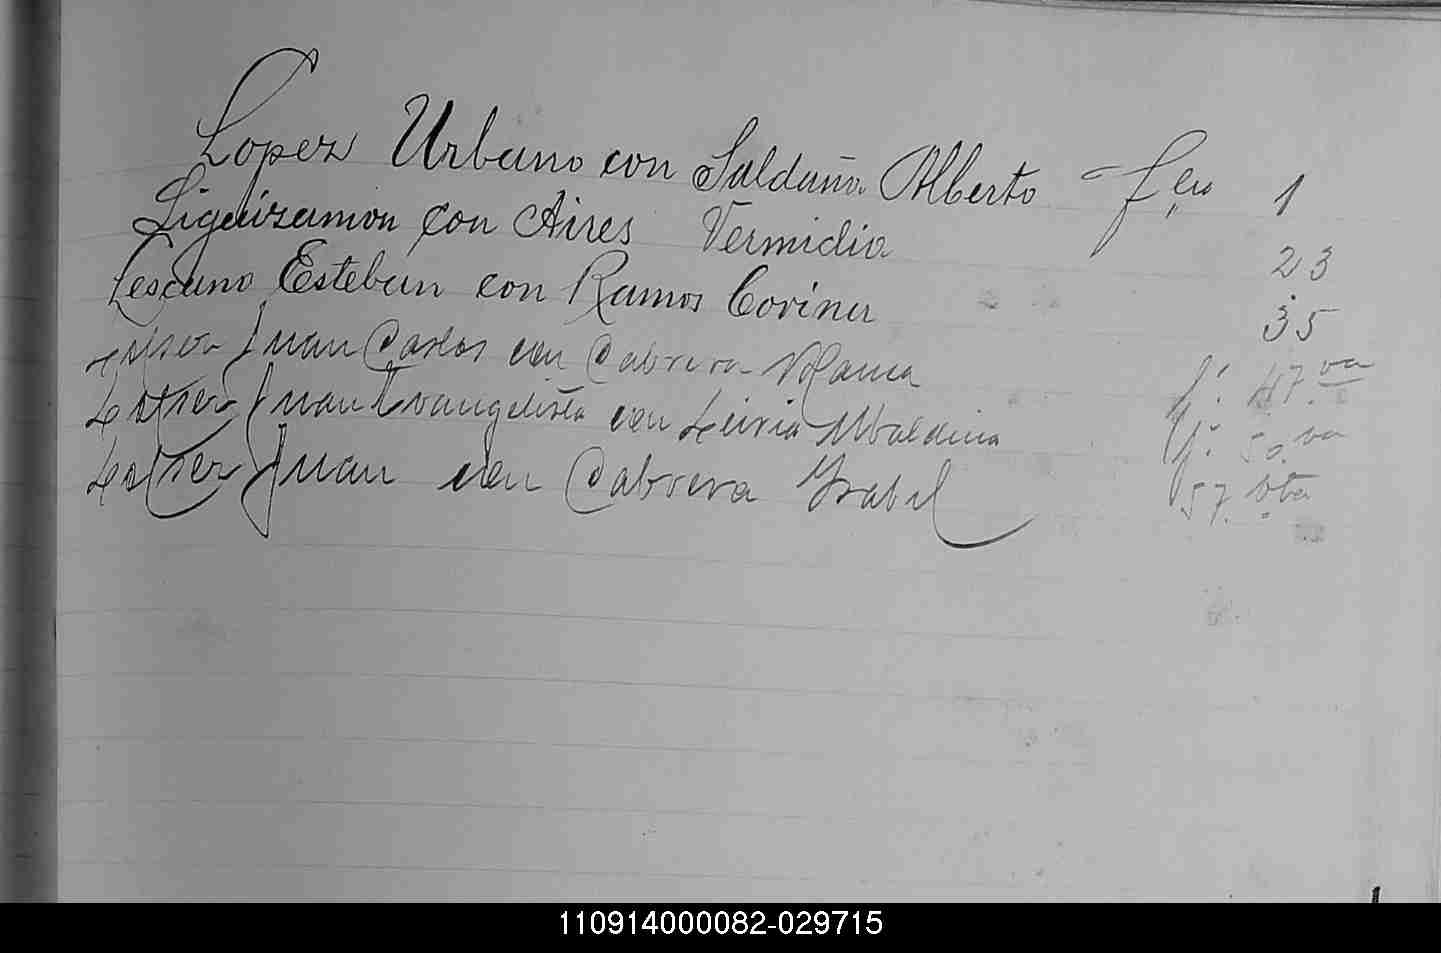 Lopez Urbano con Saldaña Alberto — f. 1
Liguizamon con Aires Vermidia 23
Lescano Esteban con Ramos Corina 35
Juan Carlos con Cabrera Blanca f. 47 va
Juan Evangelista con Leiria Ubaldina f. 50 va
Juan con Cabrera Ysabel 57 vta
110914000082-029715